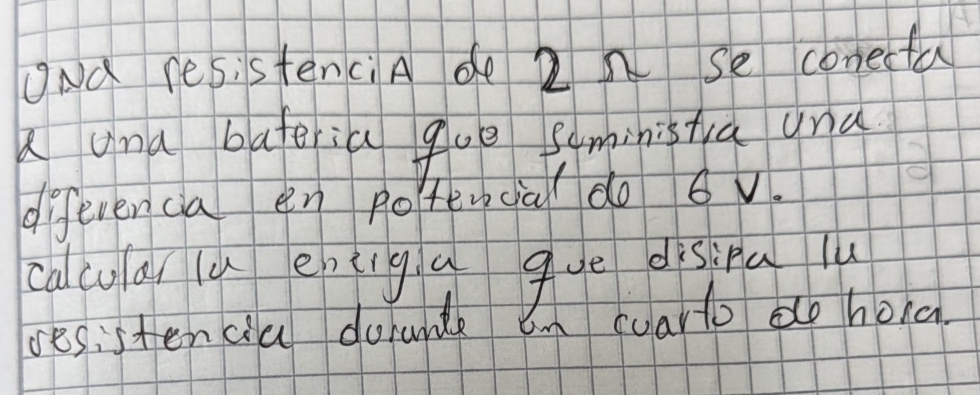 Una resistencia de 2 Ω se conecta
a una bateria que suministra una
diferencia en potencial de 6 V.
calcular la energia que disipa la
resistencia durante un cuarto de hora.